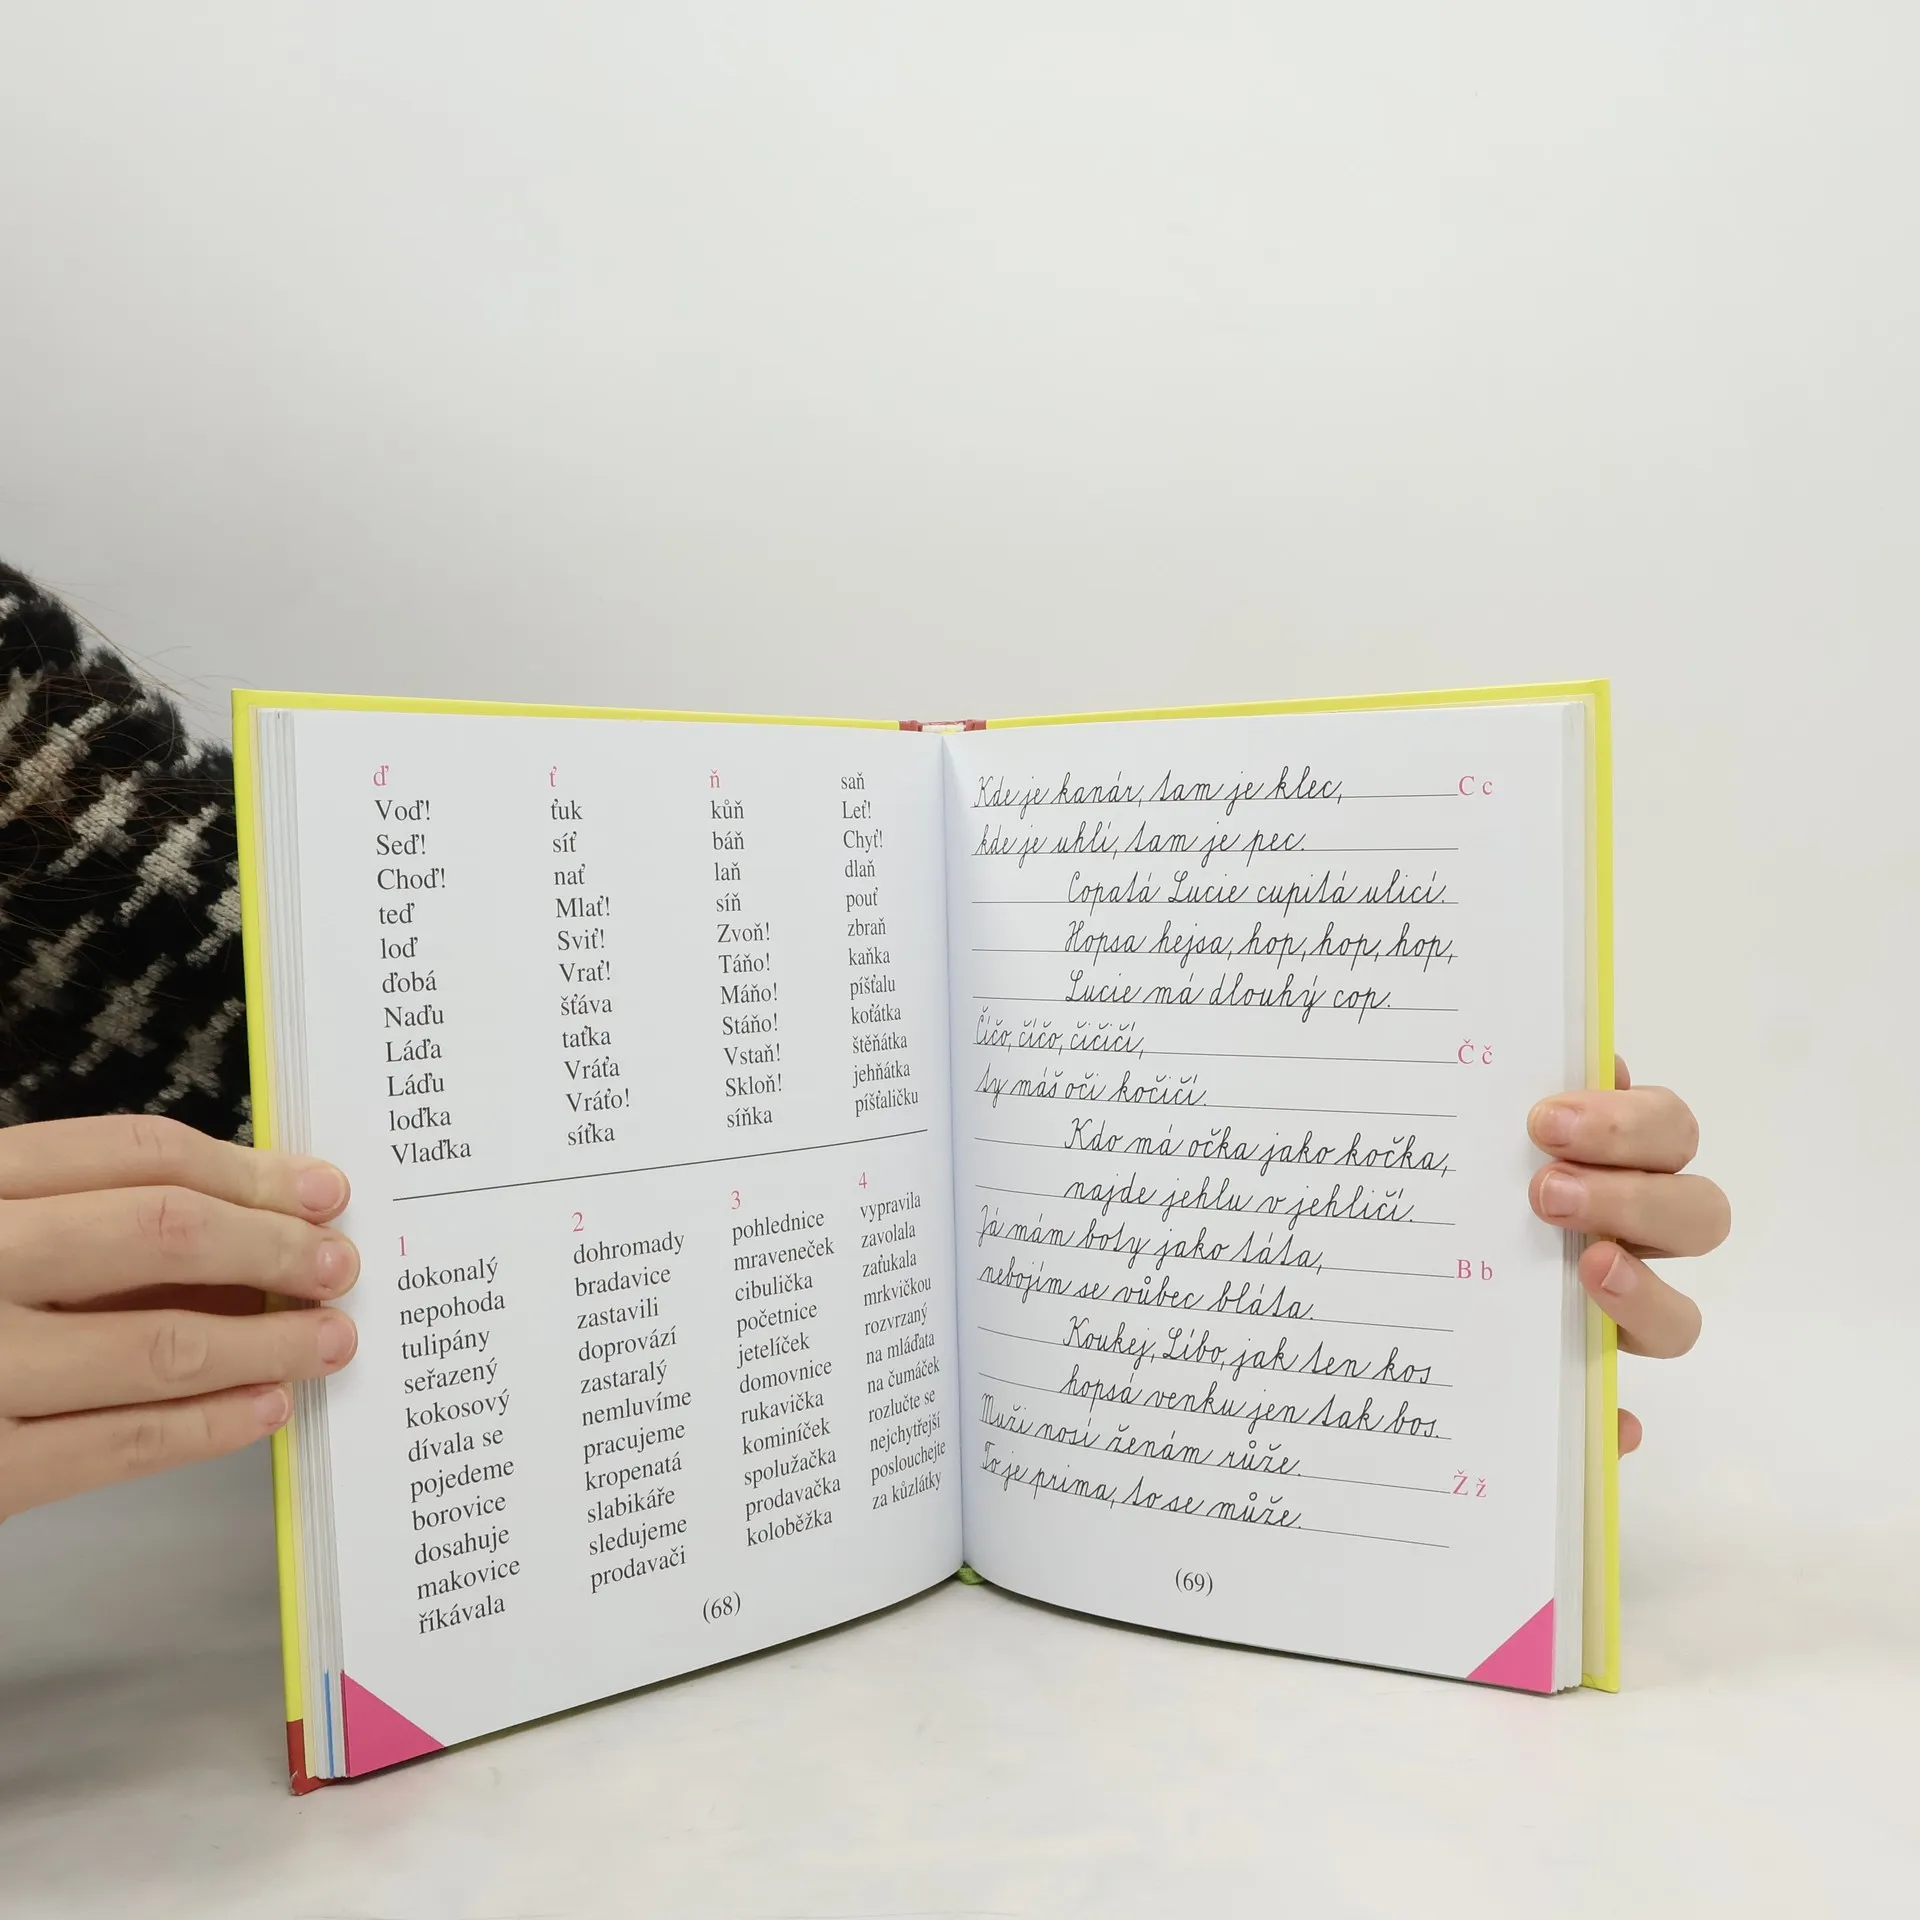 ď
Voď!
Seď!
Choď!
teď
loď
ďobá
Naďu
Láďa
Láďu
loďka
Vlaďka
ť
ťuk
síť
nať
Mlať!
Sviť!
Vrať!
šťáva
taťka
Vráťa
Vráťo!
síťka
ň
kůň
báň
laň
síň
Zvoň!
Táňo!
Máňo!
Stáňo!
Vstaň!
Skloň!
síňka
saň
Leť!
Chyť!
dlaň
pouť
zbraň
kaňka
píšťalu
koťátka
štěňátka
jehňátka
píšťaličku
1
dokonalý
nepohoda
tulipány
seřazený
kokosový
dívala se
pojedeme
borovice
dosahuje
makovice
říkávala
2
dohromady
bradavice
zastavili
doprovází
zastaralý
nemluvíme
pracujeme
kropenatá
slabikáře
sledujeme
prodavači
3
pohlednice
mraveneček
cibulička
početnice
jetelíček
domovnice
rukavička
kominíček
spolužačka
prodavačka
koloběžka
4
vypravila
zavolala
zaťukala
mrkvičkou
rozvrzaný
na mláďata
na čumáček
rozlučte se
nejchytřejší
poslouchejte
za kůzlátky
(68)
Kde je kanár, tam je klec, C c
kde je uhlí, tam je pec.
Copatá Lucie cupitá ulicí.
Hopsa hejsa, hop, hop, hop,
Lucie má dlouhý cop.
Číčo, číčo, čičičí, Č č
ty máš oči kočičí.
Kdo má očka jako kočka,
najde jehlu v jehličí.
Já mám boty jako táta, B b
nebojím se vůbec bláta.
Koukej, Líbo, jak ten kos
hopsá venku jen tak bos.
Muži nosí ženám růže. Ž ž
To je prima, to se může.
(69)